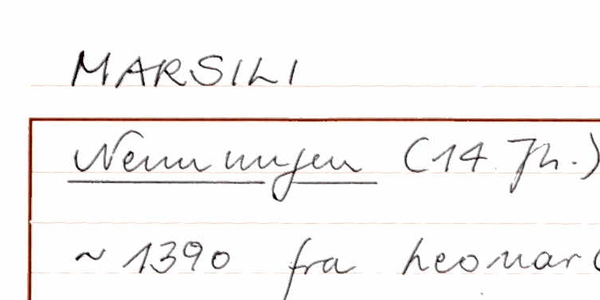 MARSILI
Nennungen (14. Jh.)
~ 1390 fra Leonar